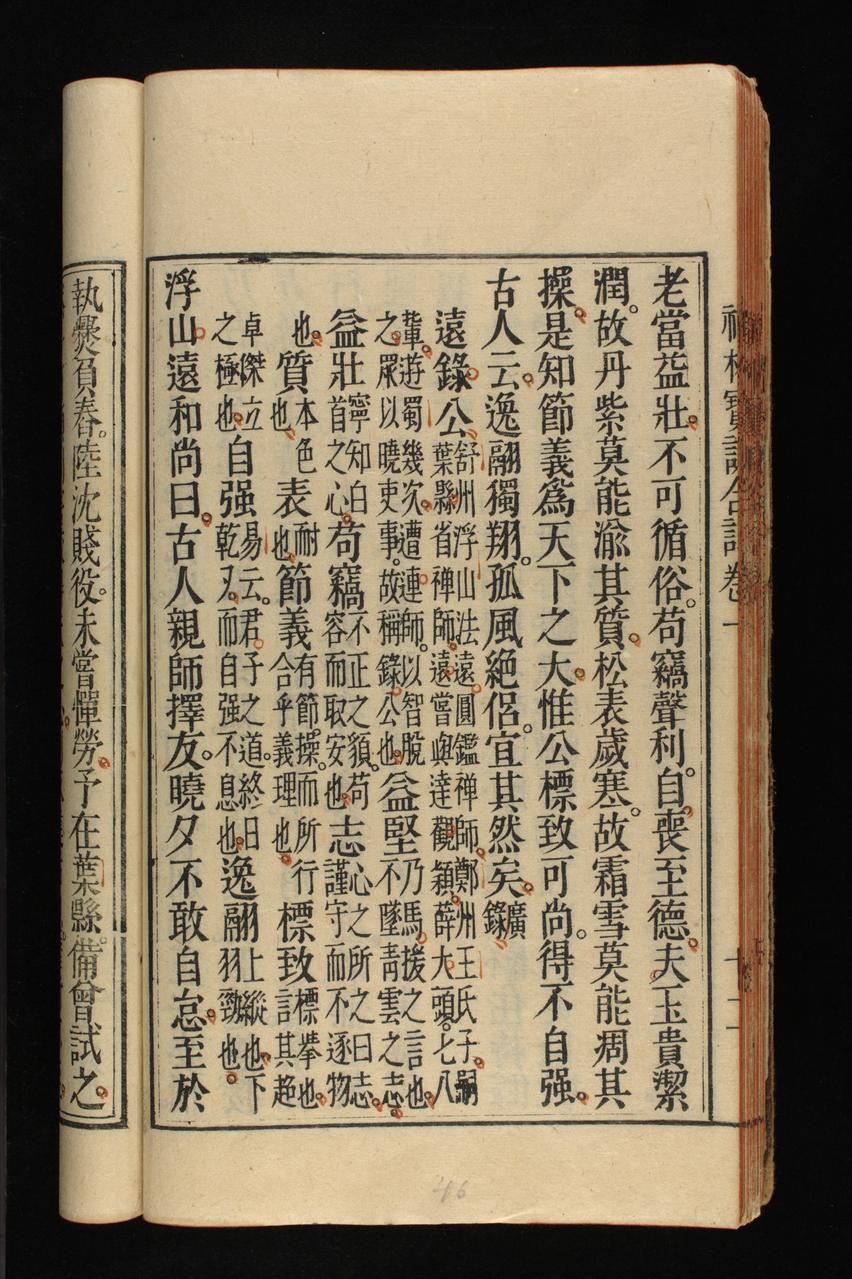 禪林寶訓合註卷一
十二
老當益壯不可循俗苟竊聲利自喪至德夫玉貴潔
潤故丹紫莫能渝其質松表歲寒故霜雪莫能凋其
操是知節義為天下之大惟公標致可尚得不自强
古人云逸翮獨翔孤風絶侶宜其然矣廣錄
遠錄公舒州浮山法遠圓鑑禪師鄭州王氏子嗣葉縣省禪師遠嘗與達觀穎薛大頭七八
輩遊蜀幾次遭連師以智脫之眾以曉吏事故稱錄公也益堅乃馬援之言也不墜青雲之志
益壯寧知白首之心苟竊不正之貌苟容而取安也志心之所之曰志謹守而不逐物
也質本色也表耐也節義有節操而所行合乎義理也標致標拳也言其趋
卓傑立之極也自强易云君子之道終日乾乾而自强不息也逸翮上縱也下羽勁也
浮山遠和尚曰古人親師擇友曉夕不敢自怠至於
執爨負舂陸沈賤役未嘗憚勞予在葉縣備曾試之
46